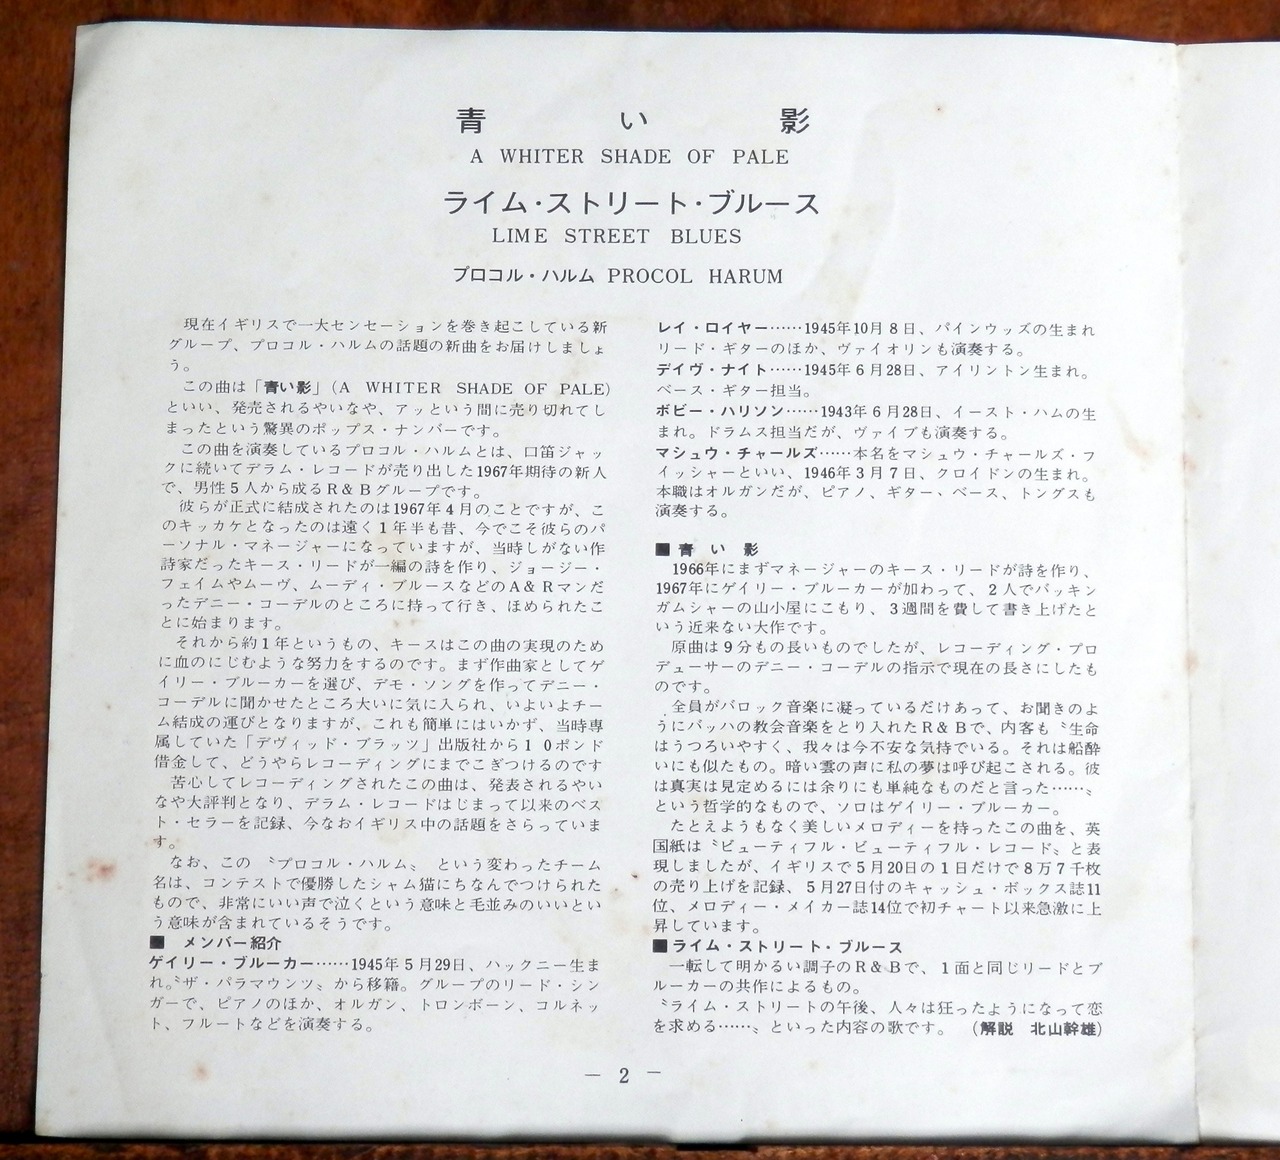 青い影
A WHITER SHADE OF PALE
ライム・ストリート・ブルース
LIME STREET BLUES
プロコル・ハルム PROCOL HARUM
現在イギリスで一大センセーションを巻き起こしている新
グループ、プロコル・ハルムの話題の新曲をお届けしましょ
う。
この曲は「青い影」(A WHITER SHADE OF PALE)
といい、発売されるやいなや、アッという間に売り切れてし
まったという驚異のポップス・ナンバーです。
この曲を演奏しているプロコル・ハルムとは、口笛ジャッ
クに続いてデラム・レコードが売り出した1967年期待の新人
で、男性5人から成るR&Bグループです。
彼らが正式に結成されたのは1967年4月のことですが、こ
のキッカケとなったのは遠く1年半も昔、今でこそ彼らのパ
ーソナル・マネージャーになっていますが、当時しがない作
詩家だったキース・リードが一編の詩を作り、ジョージー・
フェイムやムーヴ、ムーディ・ブルースなどのA&Rマンだ
ったデニー・コーデルのところに持って行き、ほめられたこ
とに始まります。
それから約1年というもの、キースはこの曲の実現のため
に血のにじむような努力をするのです。まず作曲家としてゲ
イリー・ブルーカーを選び、デモ・ソングを作ってデニー・
コーデルに聞かせたところ大いに気に入られ、いよいよチー
ム結成の運びとなりますが、これも簡単にはいかず、当時専
属していた「デヴィッド・ブラッツ」出版社から10ポンド
借金して、どうやらレコーディングにまでこぎつけるのです
苦心してレコーディングされたこの曲は、発表されるやい
なや大評判となり、デラム・レコードはじまって以来のベス
ト・セラーを記録、今なおイギリス中の話題をさらっていま
す。
なお、この〝プロコル・ハルム〟という変わったチーム
名は、コンテストで優勝したシャム猫にちなんでつけられた
もので、非常にいい声で泣くという意味と毛並みのいいとい
う意味が含まれているそうです。
■ メンバー紹介
ゲイリー・ブルーカー……1945年5月29日、ハックニー生ま
れ。〝ザ・パラマウンツ〟から移籍。グループのリード・シン
ガーで、ピアノのほか、オルガン、トロンボーン、コルネッ
ト、フルートなどを演奏する。
レイ・ロイヤー……1945年10月8日、パインウッズの生まれ
リード・ギターのほか、ヴァイオリンも演奏する。
デイヴ・ナイト……1945年6月28日、アイリントン生まれ。
ベース・ギター担当。
ボビー・ハリソン……1943年6月28日、イースト・ハムの生
まれ。ドラムス担当だが、ヴァイブも演奏する。
マシュウ・チャールズ……本名をマシュウ・チャールズ・フ
イッシャーといい、1946年3月7日、クロイドンの生まれ。
本職はオルガンだが、ピアノ、ギター、ベース、トングスも
演奏する。
■ 青い影
1966年にまずマネージャーのキース・リードが詩を作り、
1967年にゲイリー・ブルーカーが加わって、2人でバッキン
ガムシャーの山小屋にこもり、3週間を費して書き上げたと
いう近来ない大作です。
原曲は9分もの長いものでしたが、レコーディング・プロ
デューサーのデニー・コーデルの指示で現在の長さにしたも
のです。
全員がバロック音楽に凝っているだけあって、お聞きのよ
うにバッハの教会音楽をとり入れたR&Bで、内容も〝生命
はうつろいやすく、我々は今不安な気持でいる。それは船酔
いにも似たもの。暗い雲の声に私の夢は呼び起こされる。彼
は真実は見定めるには余りにも単純なものだと言った……〟
という哲学的なもので、ソロはゲイリー・ブルーカー。
たとえようもなく美しいメロディーを持ったこの曲を、英
国紙は〝ビューティフル・ビューティフル・レコード〟と表
現しましたが、イギリスで5月20日の1日だけで8万7千枚
の売り上げを記録、5月27日付のキャッシュ・ボックス誌11
位、メロディー・メイカー誌14位で初チャート以来急激に上
昇しています。
■ライム・ストリート・ブルース
一転して明かるい調子のR&Bで、1面と同じリードとブ
ルーカーの共作によるもの。
〝ライム・ストリートの午後、人々は狂ったようになって恋
を求める……〟といった内容の歌です。 (解説 北山幹雄)
— 2 —